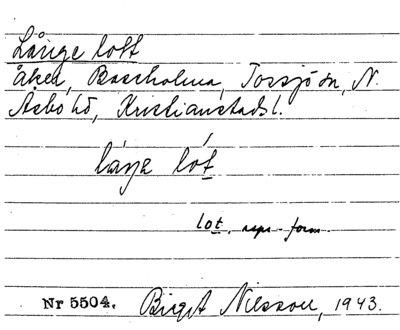 Långe lott
åker, Boarholma, Tossjö sn, N.
Åsbo hd, Kristianstads l.
låŋe lót
lot. repr. form.
Nr 5504. Birgit Nilsson, 1943.